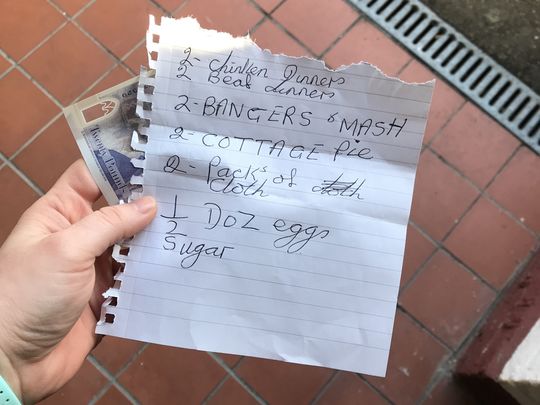 2 - Chinken Dinners
2 Beaf dinners
2 - BANGERS & MASH
2 - COTTAGE Pie
2 - Packs of cloth
cloth
1/2 DOZ eggs
Sugar
Twenty Pound